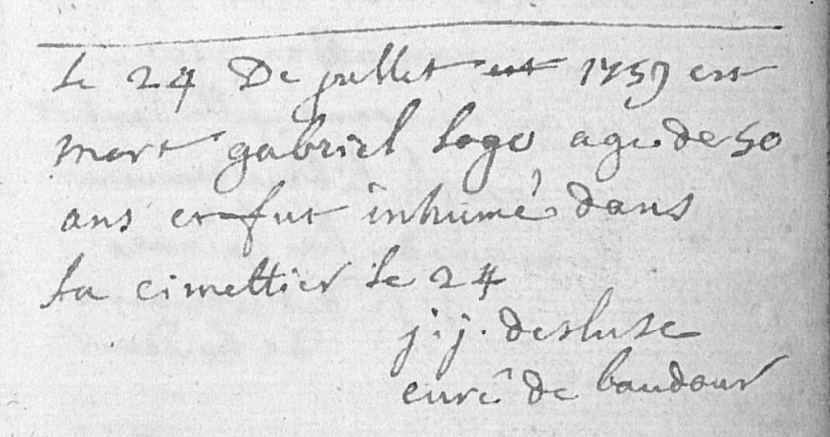 Le 24 De jullet est 1759 est
mort gabriel Loge age de 50
ans et fut inhumé dans
La cimettier Le 24
j. j. desluse
curé de baudour